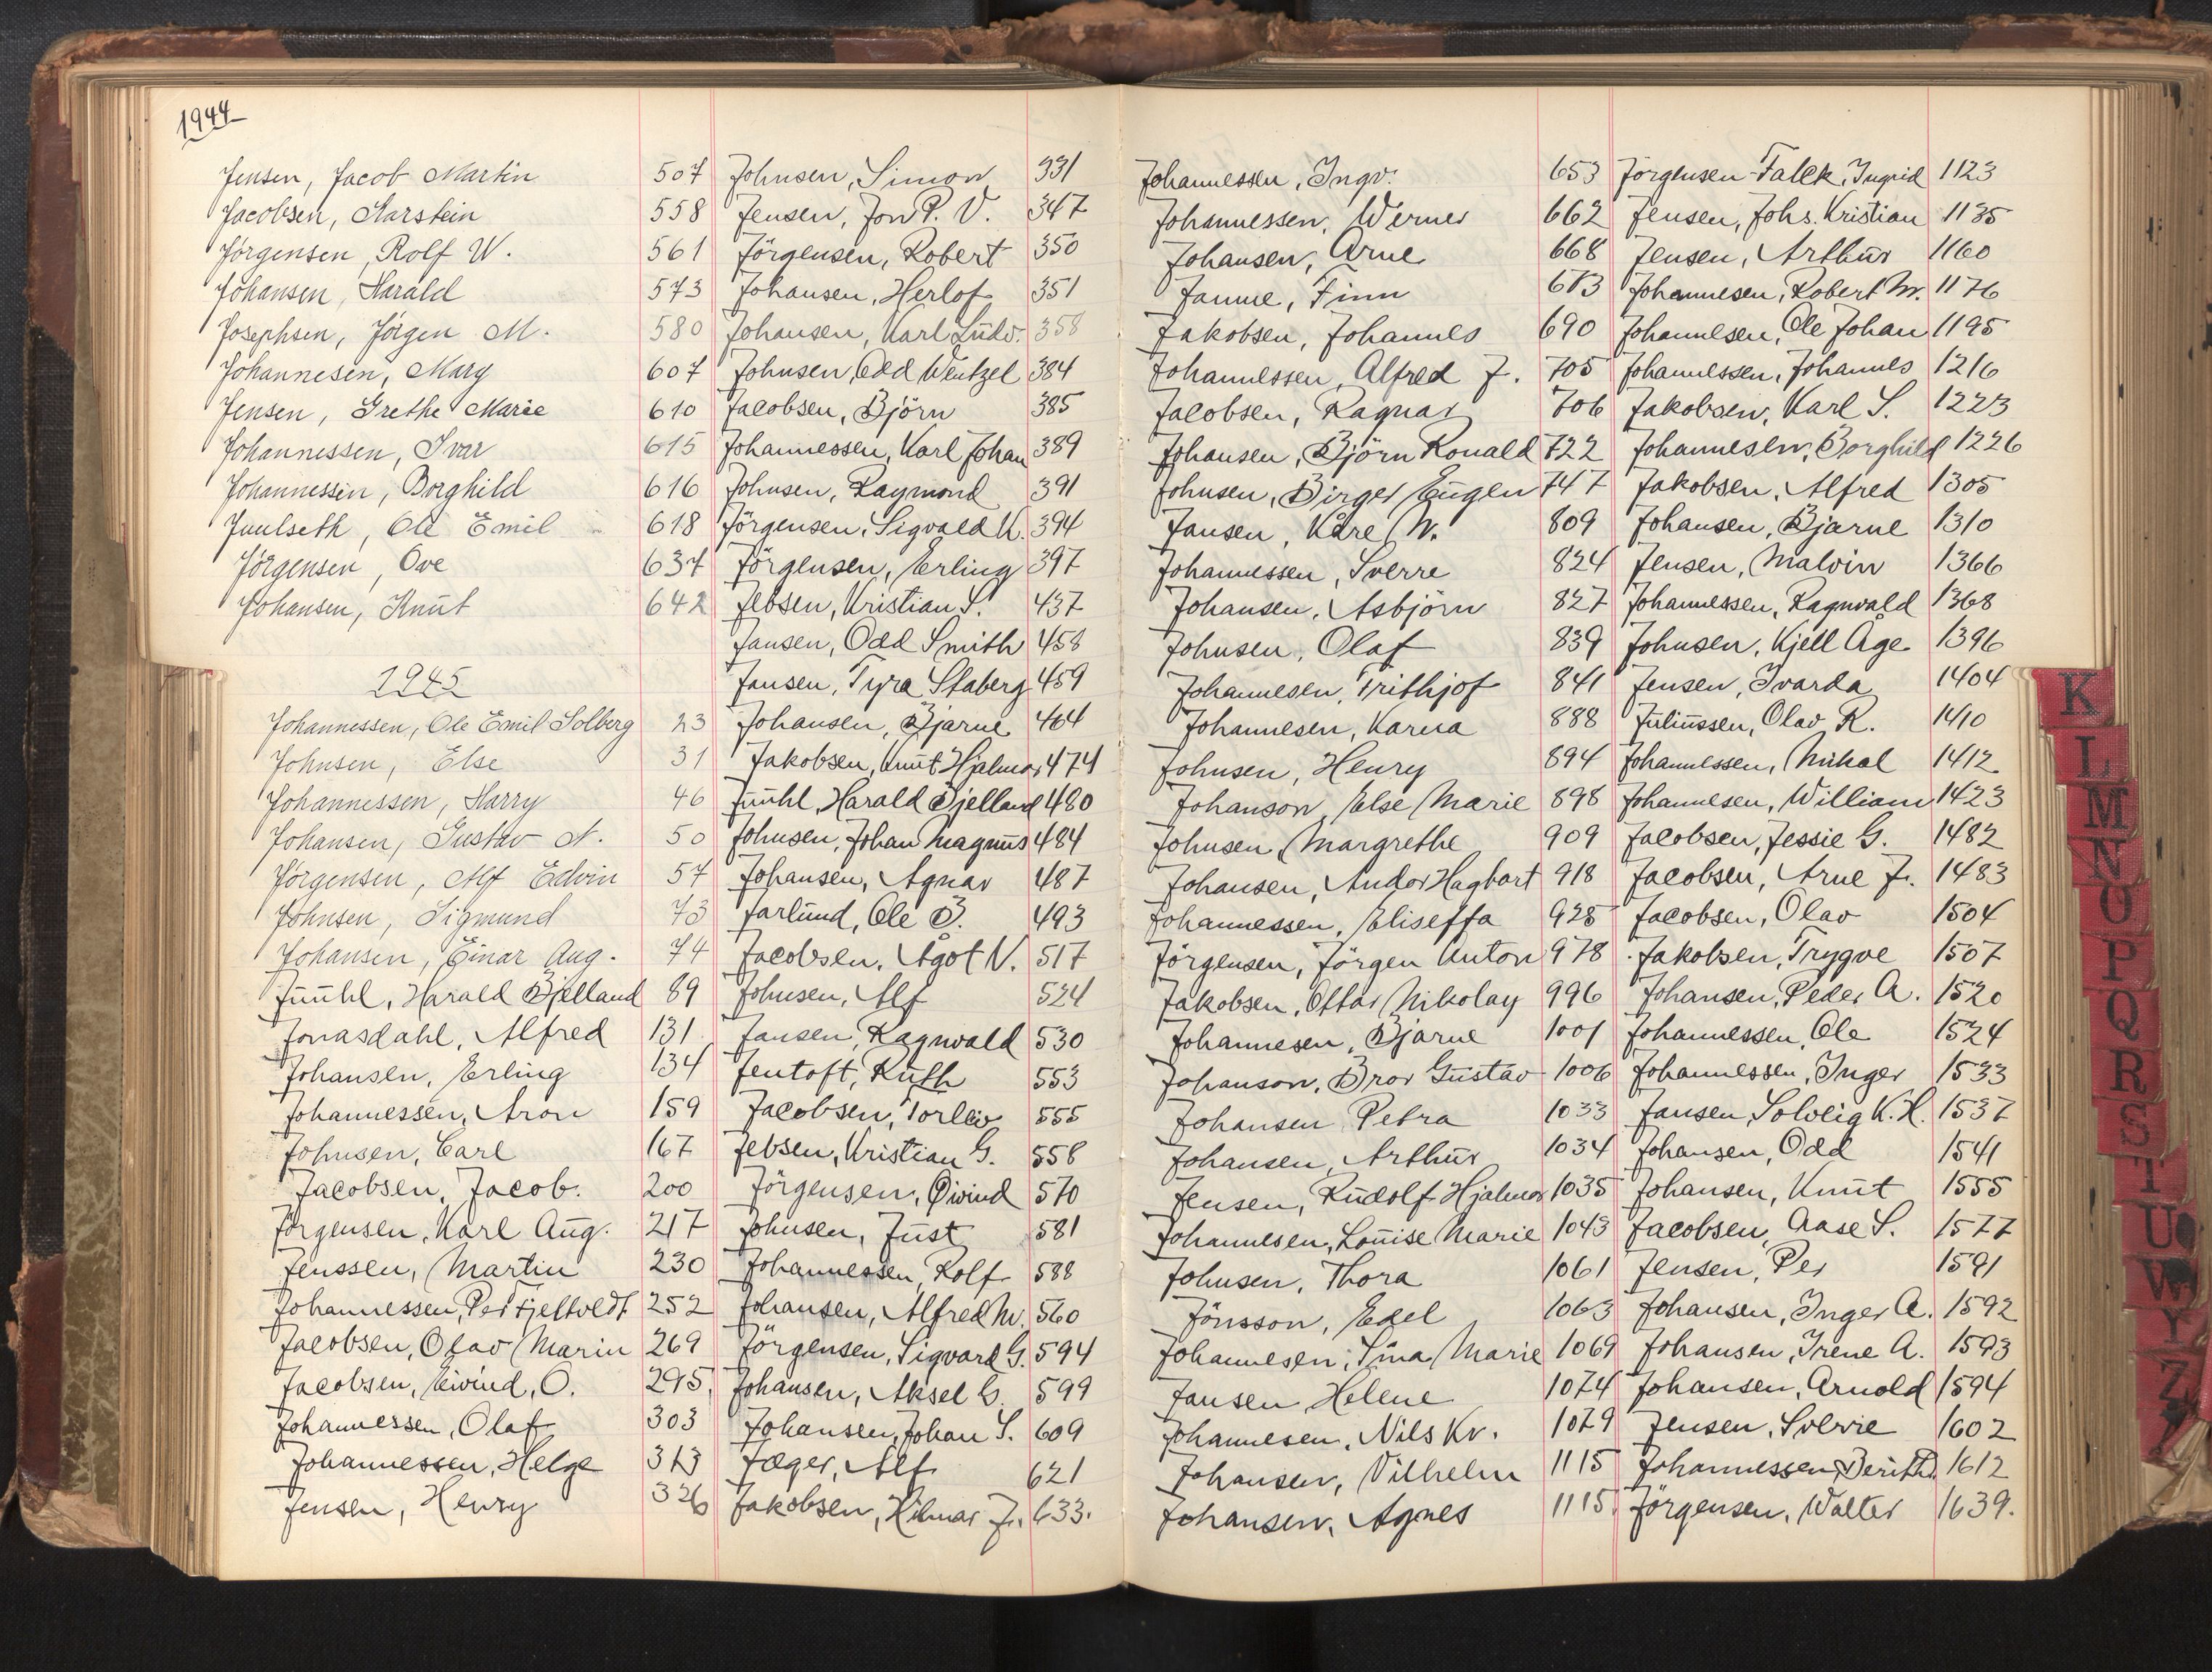 1944
Jensen, Jacob Martin 507
Jacobsen, Karstein 558
Jörgensen, Rolf W. 561
Johansen, Harald 573
Josephsen, Jörgen M. 580
Johannesen, Mary 607
Jensen, Grethe Marie 610
Johannessen, Ivar 615
Johannessen, Borghild 616
Juulseth, Ole Emil 618
Jörgensen, Ove 637
Johansen, Knut 642
1945
Johannessen, Ole Emil Solberg 23
Johnsen, Else 31
Johannessen, Harry 46
Johansen, Gustav N. 50
Jörgensen, Alf Edvin 57
Johnsen, Sigmund 73
Johansen, Einar Aug. 74
Juuhl, Harald Bjelland 89
Jonasdahl, Alfred 131
Johansen, Erling 134
Johannessen, Aron 159
Johnsen, Carl 167
Jacobsen, Jacob. 200
Jörgensen, Karl Aug. 217
Jenssen, Martin 230
Johannessen, Per Fjeltvedt 252
Jacobsen, Olav Marin 269
Jacobsen, Eivind, O. 295
Johannessen, Olaf 303
Johannessen, Helge 313
Jensen, Henry 326
Johnsen, Simon 331
Jensen, Jon P. V. 347
Jörgensen, Robert 350
Johansen, Herlof 351
Johansen, Karl Ludv. 358
Johnsen, Odd Wentzel 384
Jacobsen, Björn 385
Johannessen, Karl Johan 389
Johnsen, Raymond 391
Jörgensen, Sigvald K. 394
Jörgensen, Erling 397
Jebsen, Kristian S. 437
Jansen, Odd Smith 458
Jansen, Tyra Staberg 459
Johansen, Bjarne 464
Jakobsen, Knut Hjalmar 474
Juuhl, Harald Bjelland 480
Johnsen, Johan Magnus 484
Johansen, Agnar 487
Jarlund, Ole B. 493
Jacobsen, Ågot N. 517
Johnsen, Alf 524
Jansen, Ragnvald 530
Jentoft, Ruth 553
Jacobsen, Torleiv 555
Jebsen, Kristian G. 558
Jörgensen, Øivind 570
Johnsen, Just 581
Johannessen, Rolf 588
Johansen, Alfred M. 560
Jörgensen, Sigvard G. 594
Johansen, Aksel E. 599
Johansen, Johan S. 609
Jæger, Alf 621
Jakobsen, Hilmar J. 633.
Johannessen, Ingv. 653
Johannessen, Werner 662
Johansen, Arne 668
Janne, Finn 673
Jakobsen, Johannes 690
Johannessen, Alfred J. 705
Jacobsen, Ragnar 706
Johansen, Björn Ronald 722
Johnsen, Birger Eugen 747
Jansen, Kåre M. 809
Johannessen, Sverre 824
Johansen, Asbjörn 827
Johnsen, Olaf 839
Johannesen, Frithjof 841
Johannesen, Karna 888
Johnsen, Henry 894
Johanson, Else Marie 898
Johnsen, Margrethe 909
Johansen, Andor Hagbart 918
Johannessen, Eliseffa 925
Jörgensen, Jörgen Anton 978
Jakobsen, Ottar Nikolay 996
Johannesen, Bjarne 1001
Johanson, Bror Gustav 1006
Johansen Petra 1033
Johansen, Arthur 1034
Jensen, Rudolf Hjalmar 1035
Johannesen, Louise Marie 1043
Johnsen, Thora 1061
Jönsson, Edel 1063
Johannesen, Sina Marie 1069
Jansen Helene 1074
Johannesen, Nils Kr. 1079
Johansen, Vilhelm 1115
Johansen, Agnes 1115
Jörgensen-Falck, Ingrid 1123
Jensen, Johs. Kristian 1135
Jensen, Arthur 1160
Johannesen, Robert M. 1176
Johannesen, Ole Johan 1195
Johannessen, Johannes 1216
Jakobsen, Karl S. 1223
Johannesen, Borghild 1226
Jakobsen, Alfred 1305
Johansen, Bjarne 1310
Jensen, Malvin 1366
Johannessen, Ragnvald 1368
Johnsen, Kjell Åge 1396
Jensen, Ivarda 1404
Juliussen, Olav R. 1410
Johannessen, Mikal 1412
Johannesen, William 1423
Jacobsen, Jessie G. 1482
Jacobsen, Arne J. 1483
Jacobsen, Olav 1504
Jakobsen, Trygve 1507
Johansen, Peder A. 1520
Johannessen, Ole 1524
Johannessen, Inger 1533
Jansen, Solveig K. H. 1537
Johansen, Odd 1541
Johansen, Knut 1555
Jacobsen, Aase S. 1577
Jensen, Per 1591
Johansen, Inger A. 1592
Johansen, Irene A. 1593
Johansen, Arnold 1594
Jensen, Solvie 1602
Johannessen, Berith 1612
Jörgensen, Walter 1639.
K
L
M
N
O
P
Q
R
S
T
U
W
Y
Z